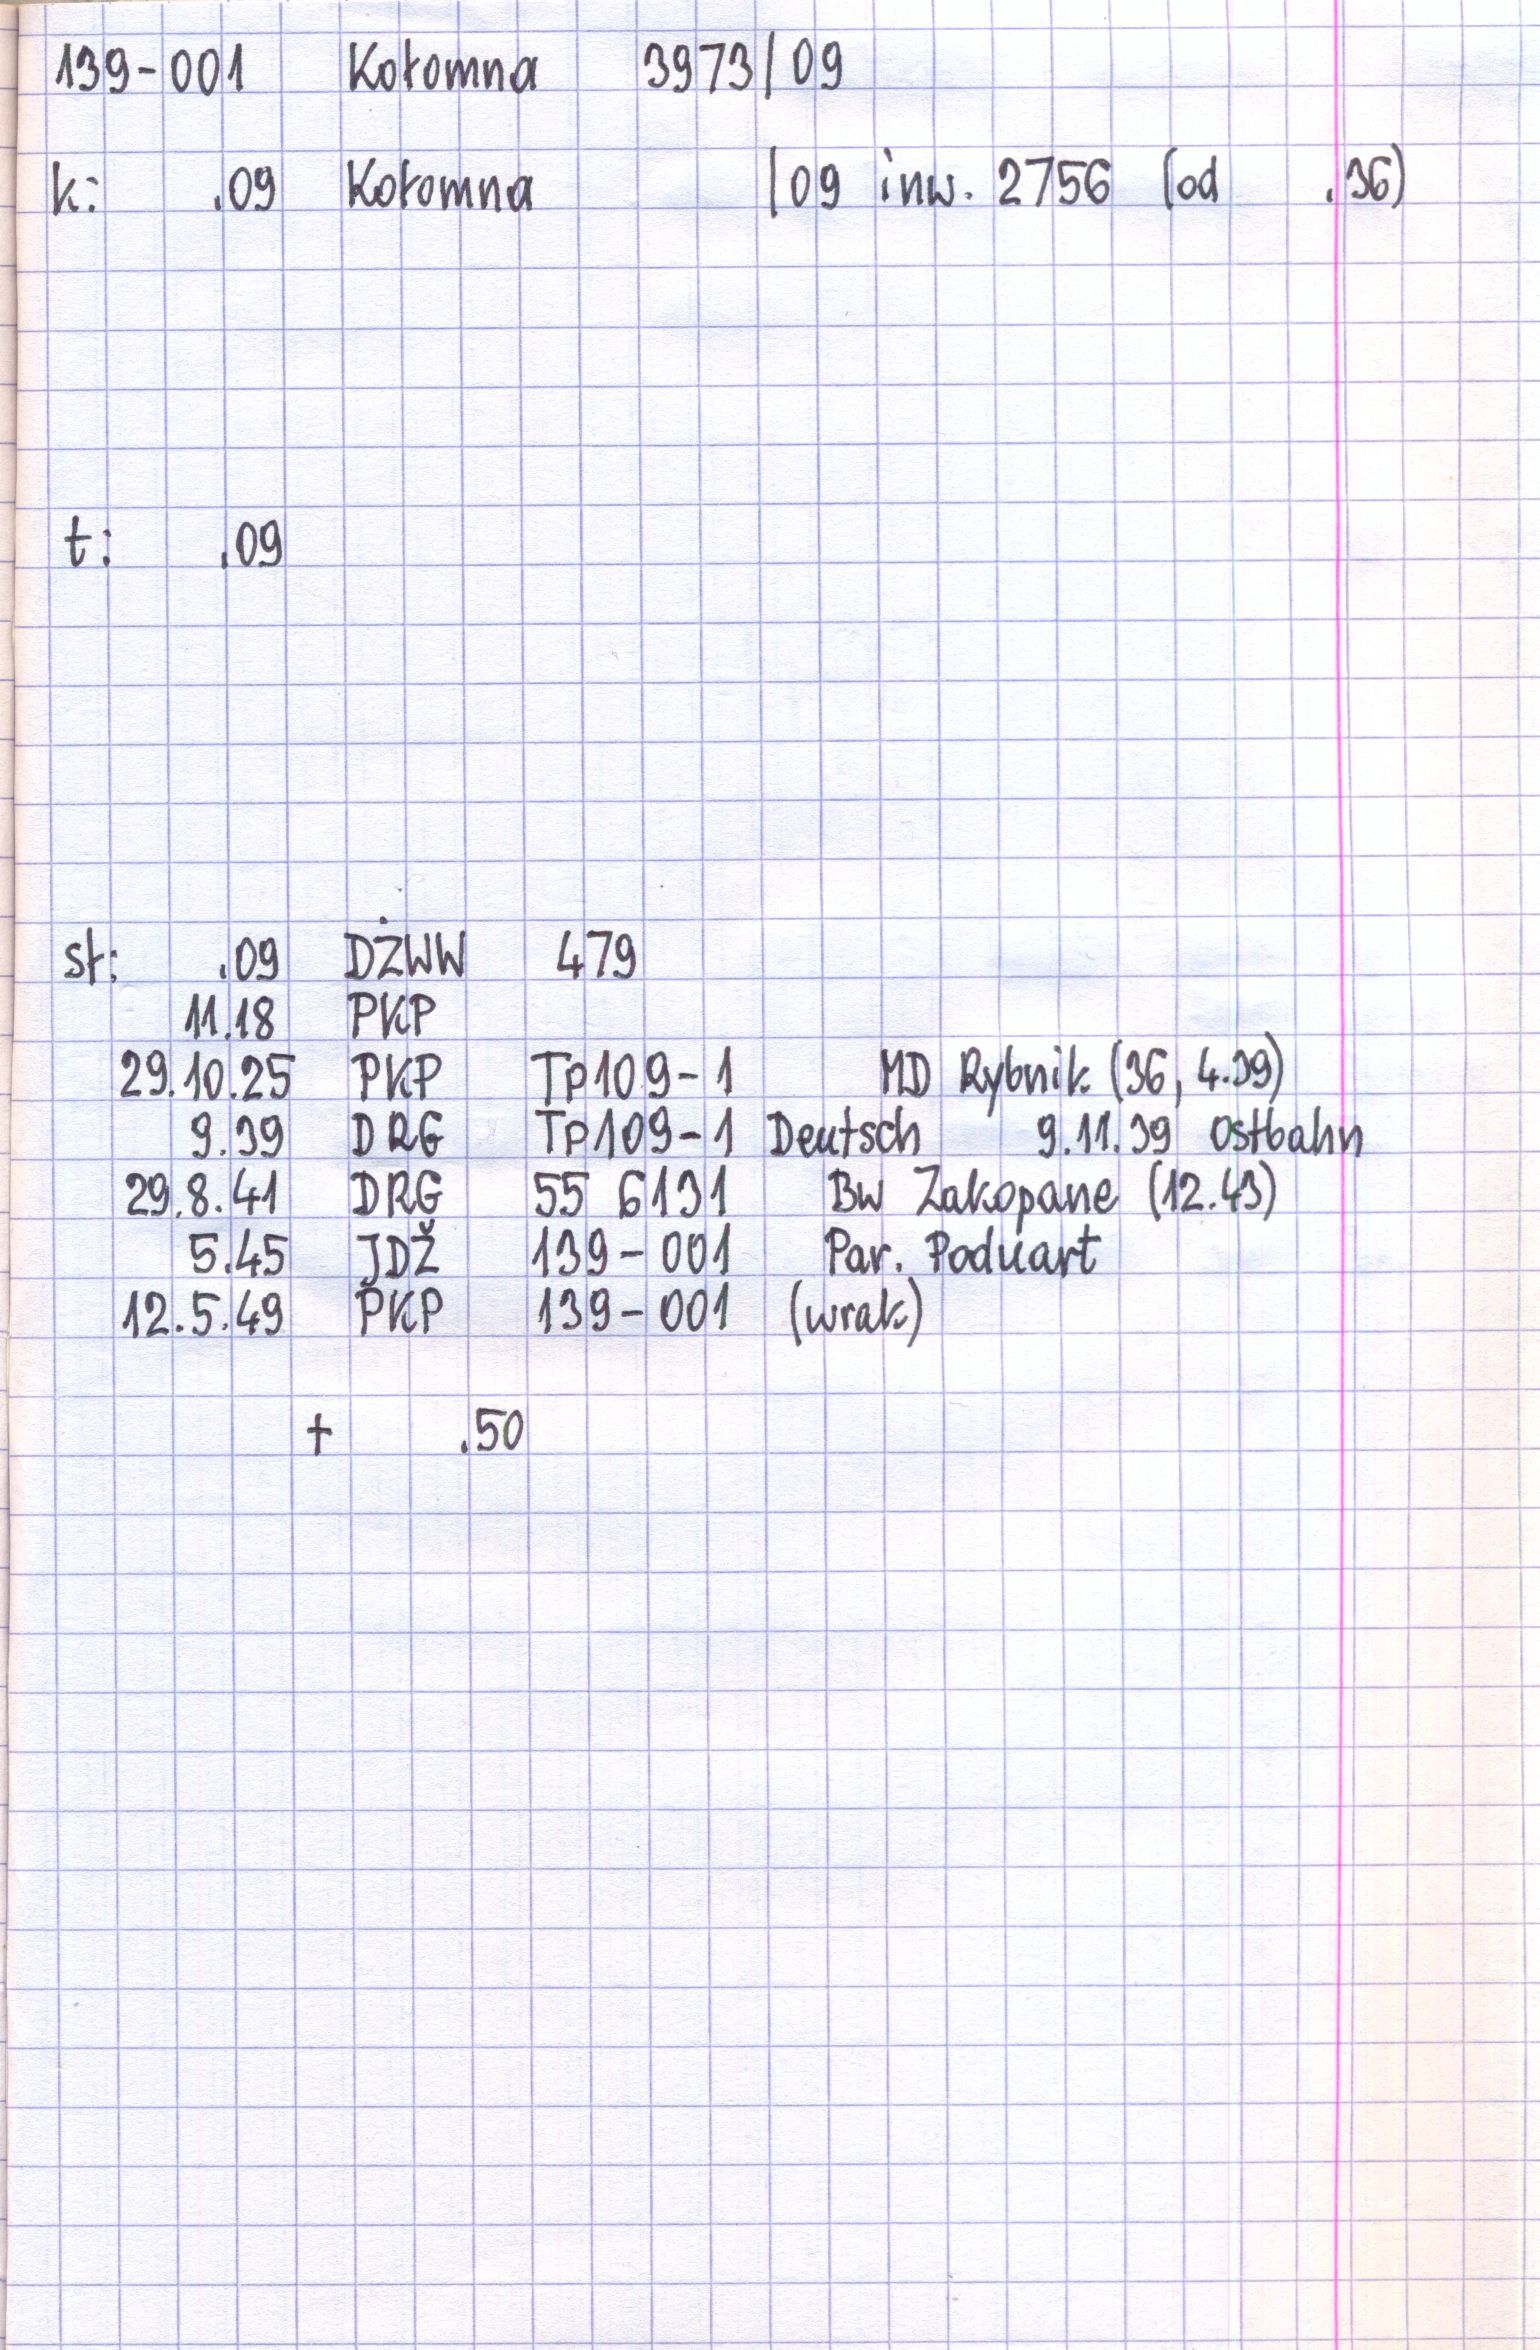 139-001 Kołomna 3973/09
k: .09 Kołomna /09 inw. 2756 (od .36)
t: .09
st: .09 DŻWW 479
11.18 PKP
29.10.25 PKP Tp109-1 MD Rybnik (36, 4.39)
9.39 DRG Tp109-1 Deutsch 9.11.39 Ostbahn
29.8.41 DRG 55 6131 Bw Zakopane (12.43)
5.45 JDŽ 139-001 Par. Poduart
12.5.49 PKP 139-001 (wrak)
+ .50